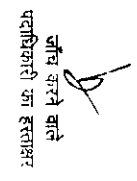 जाँच करने वाले
पदाधिकारी का हस्ताक्षर